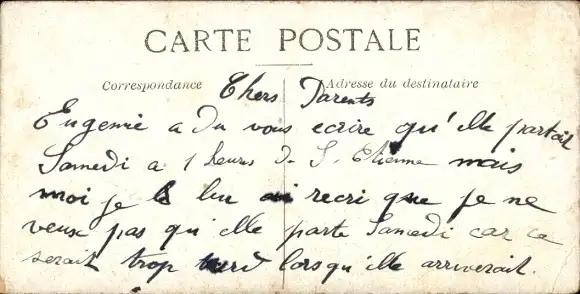 CARTE POSTALE
Correspondance
Adresse du destinataire
Chers Parents
Eugenie a du vous ecrire qu'elle partait
Samedi a 1 heures de S. Etienne mais
moi je lui ai recri que je ne
veux pas qu'elle parte Samedi car ce
serait trop tard lorsqu'elle arriverait.